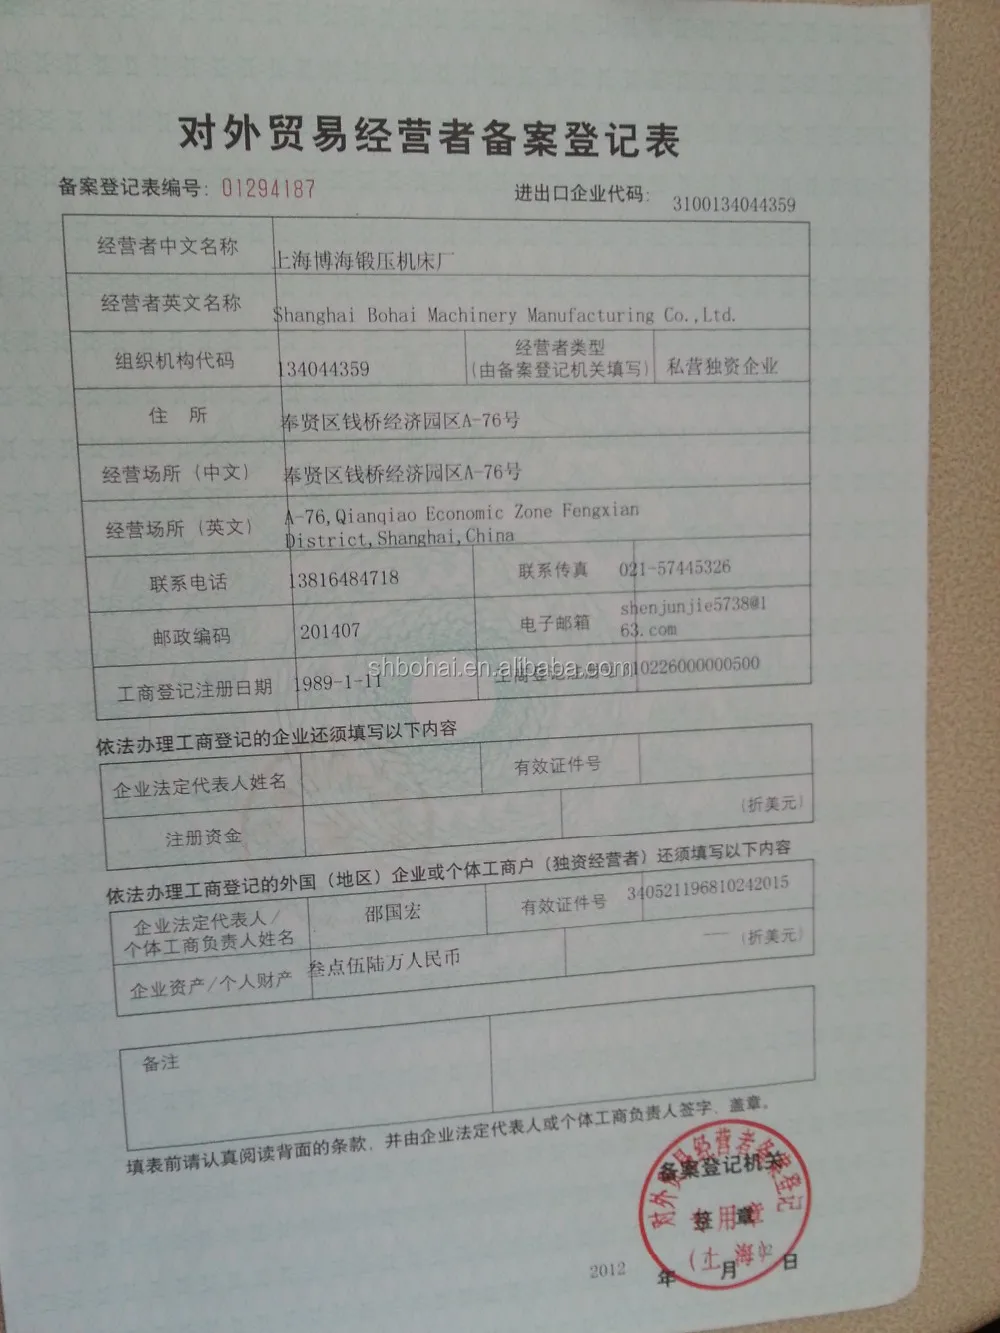 对外贸易经营者备案登记表
备案登记表编号: 01294187 进出口企业代码: 3100134044359
经营者中文名称 上海博海锻压机床厂
经营者英文名称 Shanghai Bohai Machinery Manufacturing Co.,Ltd.
组织机构代码 134044359 经营者类型 (由备案登记机关填写) 私营独资企业
住 所 奉贤区钱桥经济园区A-76号
经营场所（中文） 奉贤区钱桥经济园区A-76号
经营场所（英文） A-76,Qianqiao Economic Zone Fengxian
District,Shanghai,China
联系电话 13816484718 联系传真 021-57445326
邮政编码 201407 电子邮箱 shenjunjie5738@1
63.com
shbohai.en.alibaba.com
工商登记注册日期 1989-1-11 工商登记注册号 310226000000500
依法办理工商登记的企业还须填写以下内容
企业法定代表人姓名 有效证件号
注册资金 (折美元)
依法办理工商登记的外国（地区）企业或个体工商户（独资经营者）还须填写以下内容
企业法定代表人/
个体工商负责人姓名 邵国宏 有效证件号 340521196810242015
企业资产/个人财产 叁点伍陆万人民币 — (折美元)
备注
填表前请认真阅读背面的条款，并由企业法定代表人或个体工商负责人签字、盖章。
对外贸易经营者备案登记
备案登记机关
专用章
签 章
(上海)
2012 年 月 日